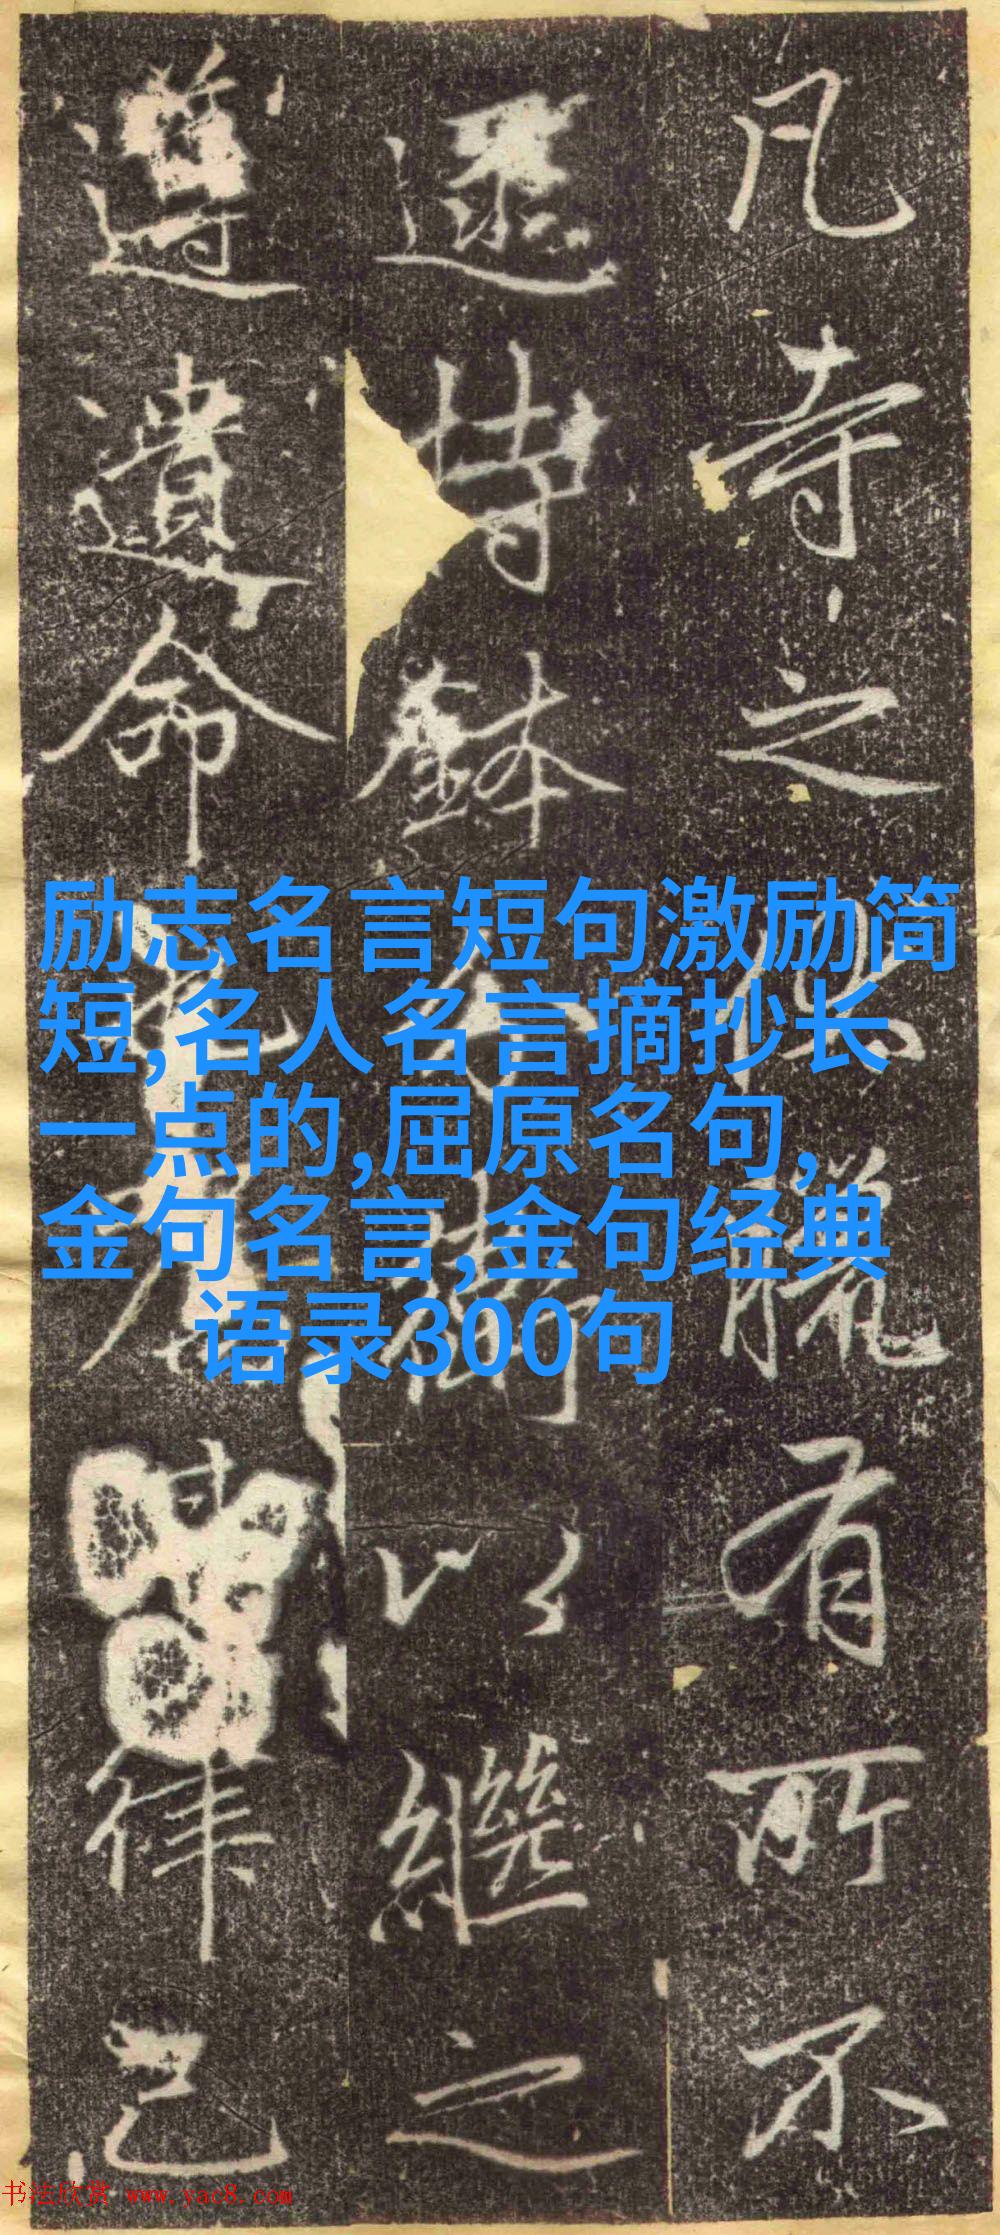 凡寺之供臘有所不
還持鉢人衛以繼之
遵遺命
律己
励志名言短句激励简
短,名人名言摘抄长
一点的,屈原名句,
金句名言,金句经典
语录300句
书法欣赏 www.yac8.com